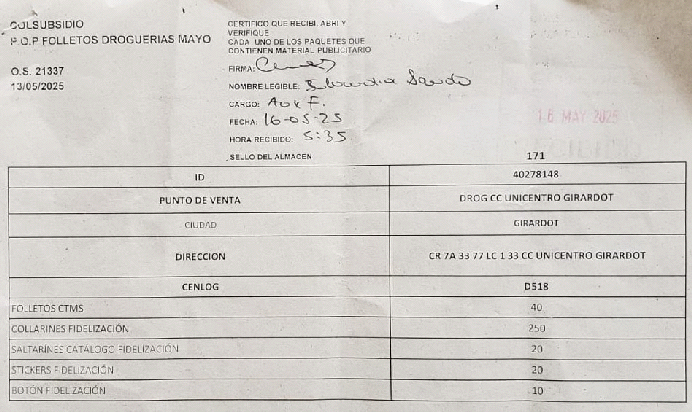 COLSUBSIDIO
P.O.P FOLLETOS DROGUERIAS MAYO
O.S. 21337
13/05/2025
CERTIFICO QUE RECIBI, ABRI Y
VERIFIQUE
CADA UNO DE LOS PAQUETES QUE
CONTIENEN MATERIAL PUBLICITARIO
FIRMA:
NOMBRE LEGIBLE:
CARGO: Aux F.
FECHA: 16-05-25
HORA RECIBIDO: 5:35
SELLO DEL ALMACEN
16 MAY 2025
171
ID 40278148
PUNTO DE VENTA DROG CC UNICENTRO GIRARDOT
CIUDAD GIRARDOT
DIRECCION CR 7A 33 77 LC 1 33 CC UNICENTRO GIRARDOT
CENLOG D518
FOLLETOS CTMS 40
COLLARINES FIDELIZACIÓN 250
SALTARINES CATÁLOGO FIDELIZACIÓN 20
STICKERS FIDELIZACIÓN 20
BOTÓN FIDELIZACIÓN 10